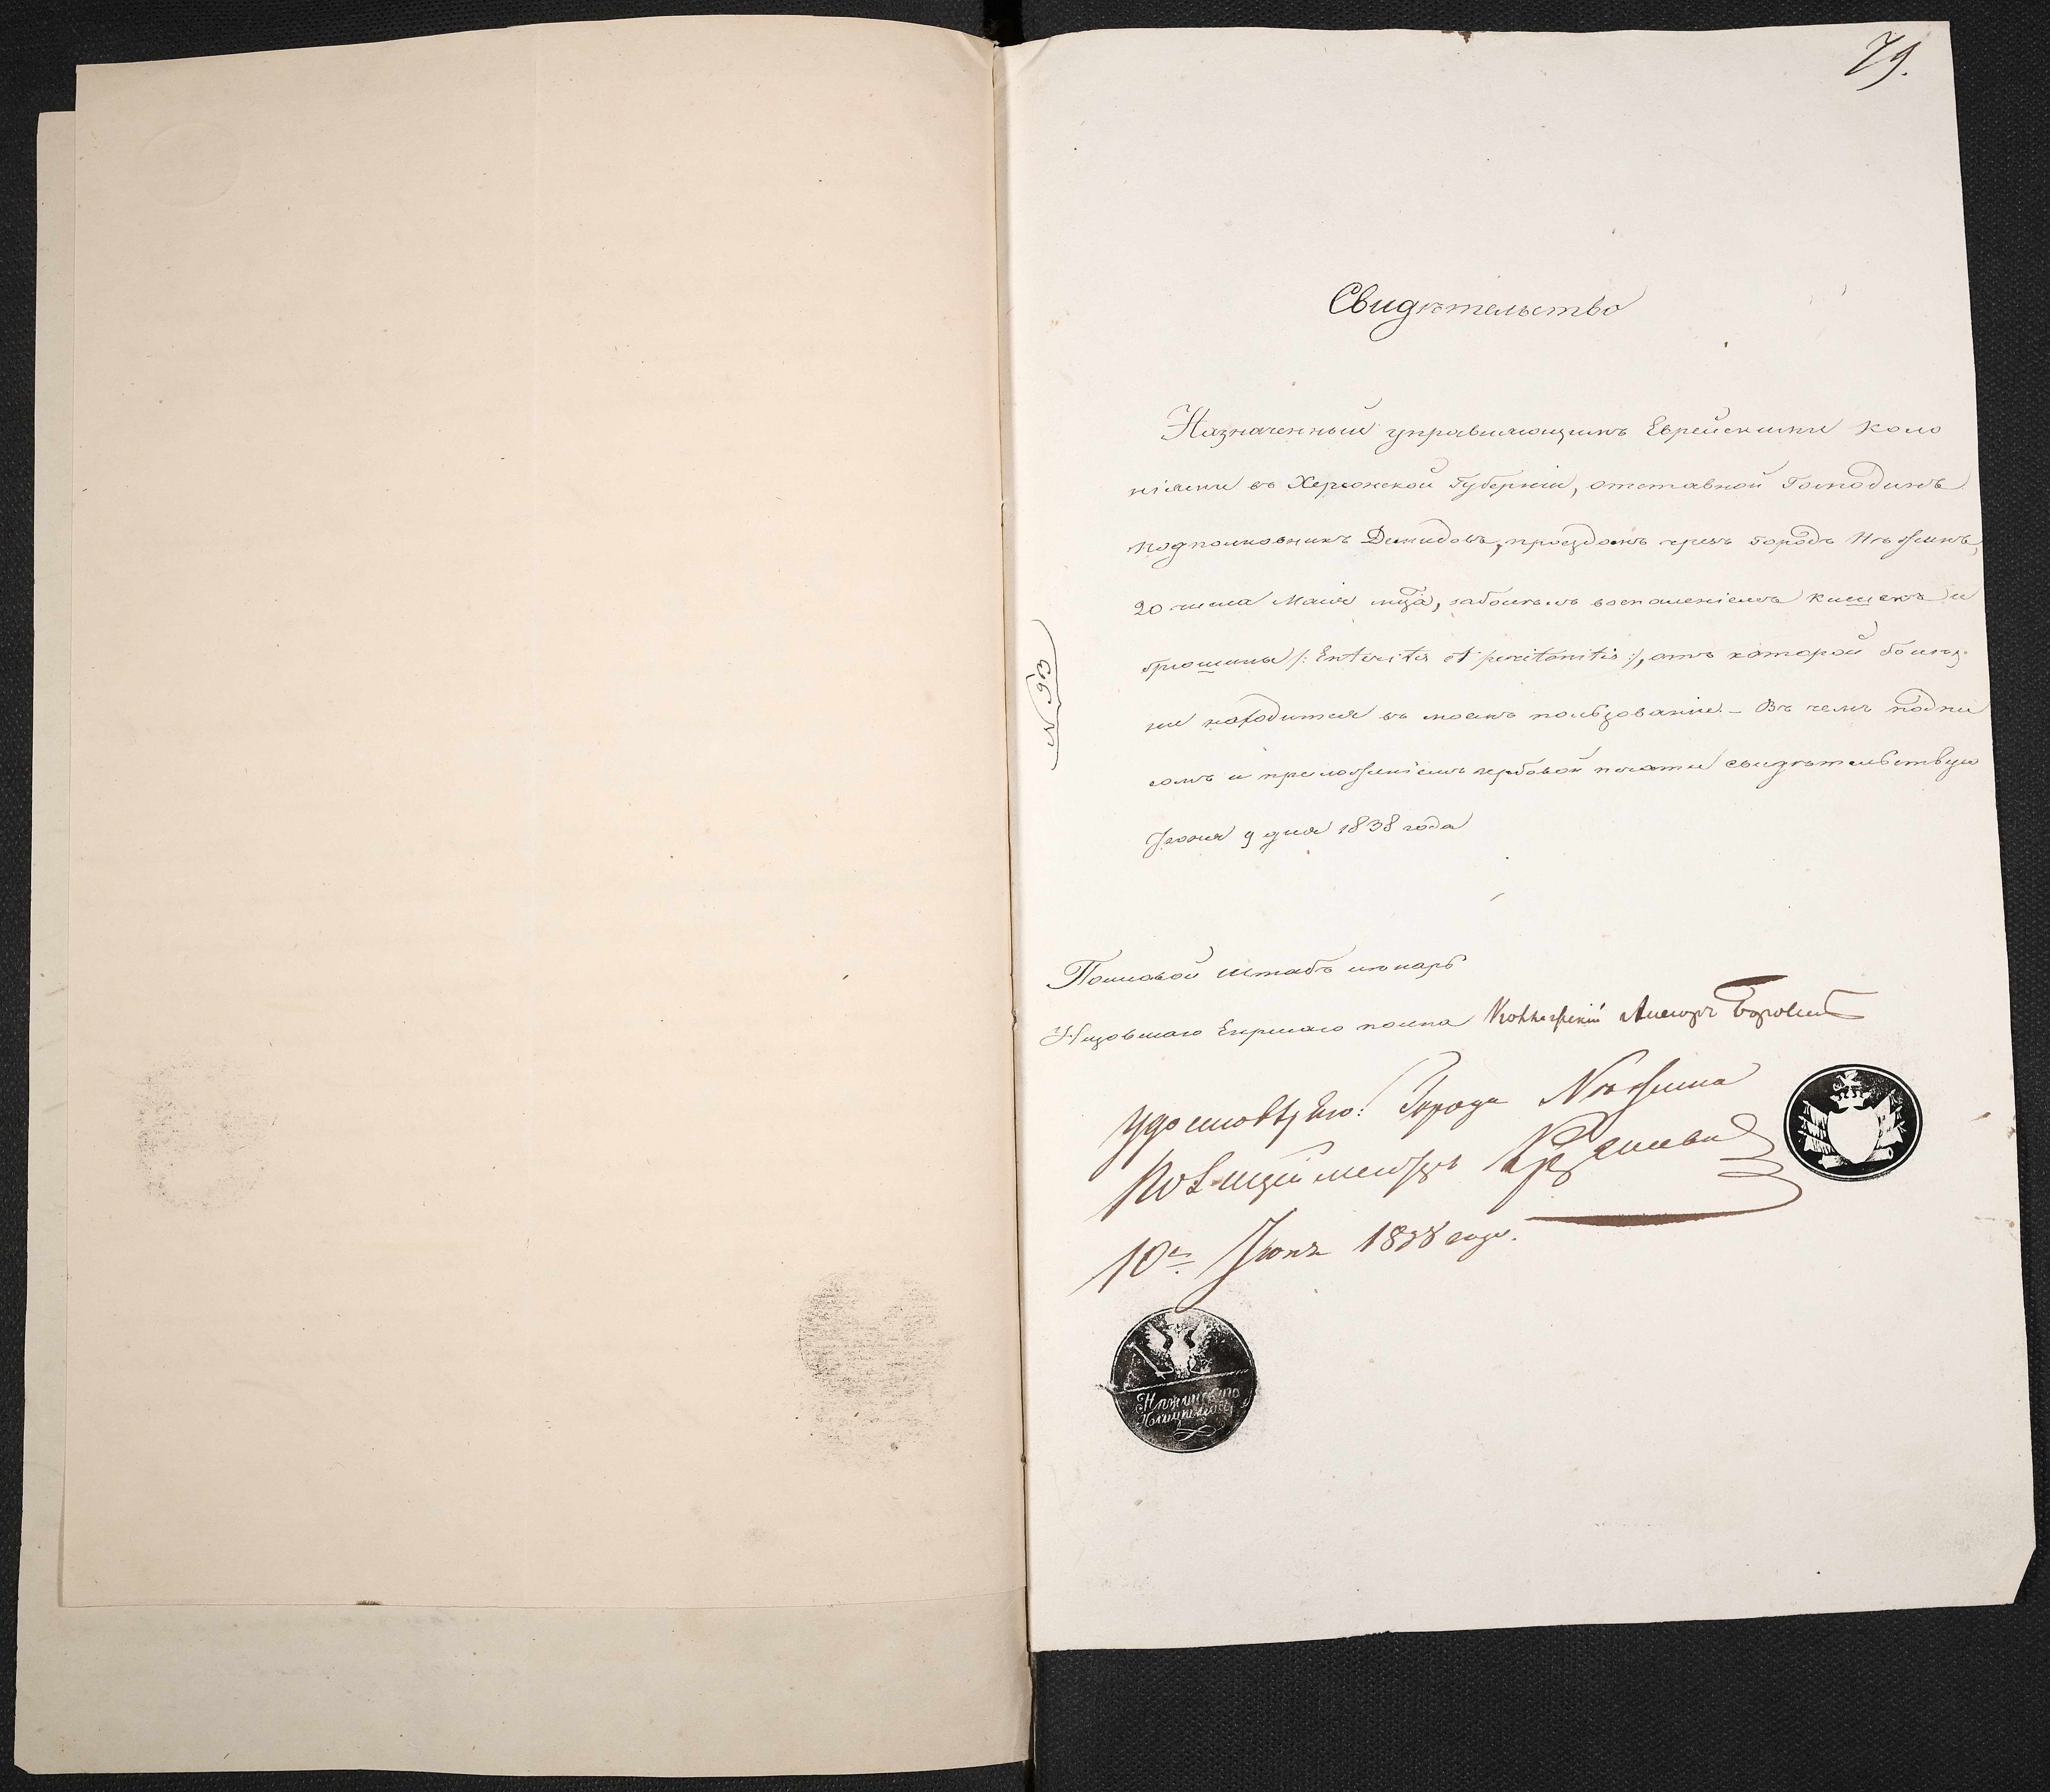 79.
Свидѣтельство
Назначенный управляющимъ Еврейскими коло
ніями въ Херсонской Губерніи, отставной Господинъ
подполковникъ Демидовъ, проездомъ чрезъ городъ Нѣжинъ,
20 числа Маія мца, заболѣлъ воспаленіемъ кишекъ и
брюшины /: Enteritis et peritonitis :/, отъ которой болѣз-
ни находится въ моемъ пользованіи. – Въ чемъ подпи
сомъ и приложеніемъ гербовой печати свидѣтельствую
Іюня 9 дня 1838 года
N 93
Полковой штабъ лѣкарь
Низовскаго Егерскаго полка Коллежскій Асесоръ
Удостовѣряю: Города Нѣжина
Полицiймейстръ
10е Іюня 1838 года.
Нѣжинскаго